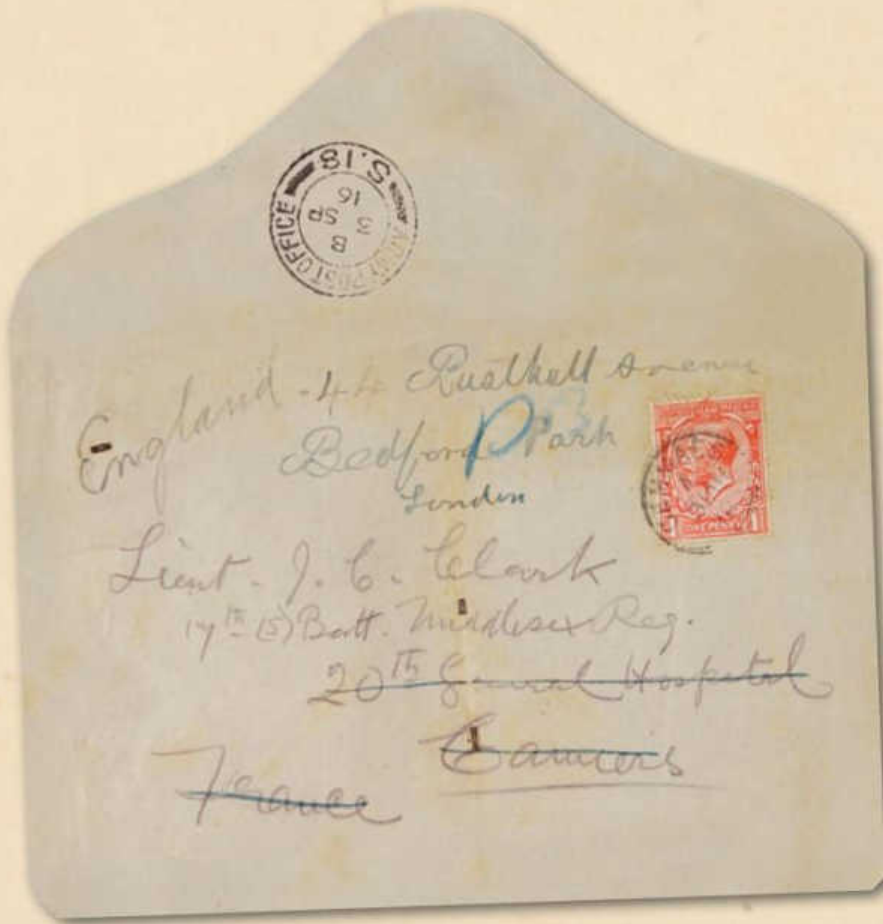 ARMY POST OFFICE
S.18
B
3 SP
16
England - 44 Rusthall Avenue
Bedford Park
London
ONE PENNY
1 1
Lieut. J. C. Clark
17th (S) Batt. Middlesex Reg.
20th General Hospital
Camiers
France